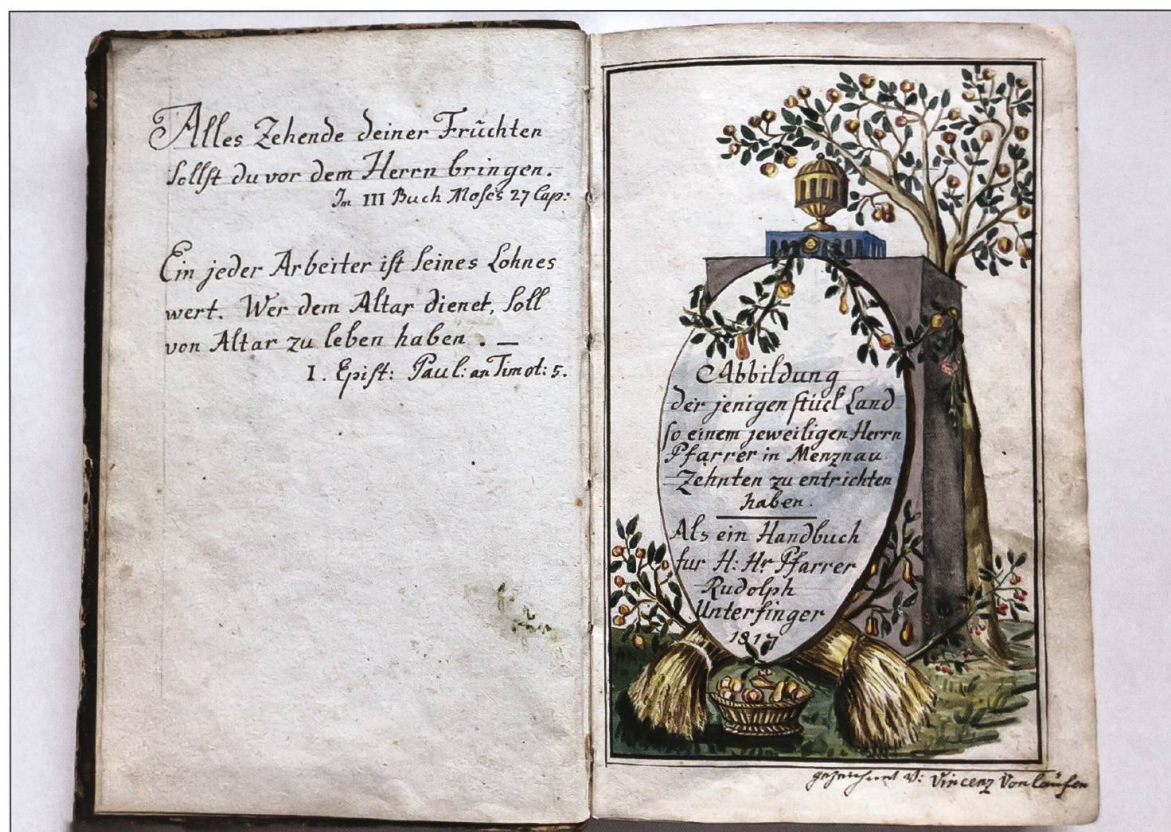 Alles Zehende deiner Früchten
sollst du vor dem Herrn bringen.
Im III Buch Moses 27 Cap:
Ein jeder Arbeiter ist seines Lohnes
wert. Wer dem Altar dienet, soll
von Altar zu leben haben. —
I. Epist: Paul: an Timot: 5.
Abbildung
der jenigen stück Land
so einem jeweiligen Herrn
Pfarrer in Menznau
Zehnten zu entrichten
haben.
Als ein Handbuch
fur H: Hr Pfarrer
Rudolph
Unterfinger
1817
gezeichnet v: Vincenz Vonlaüfen